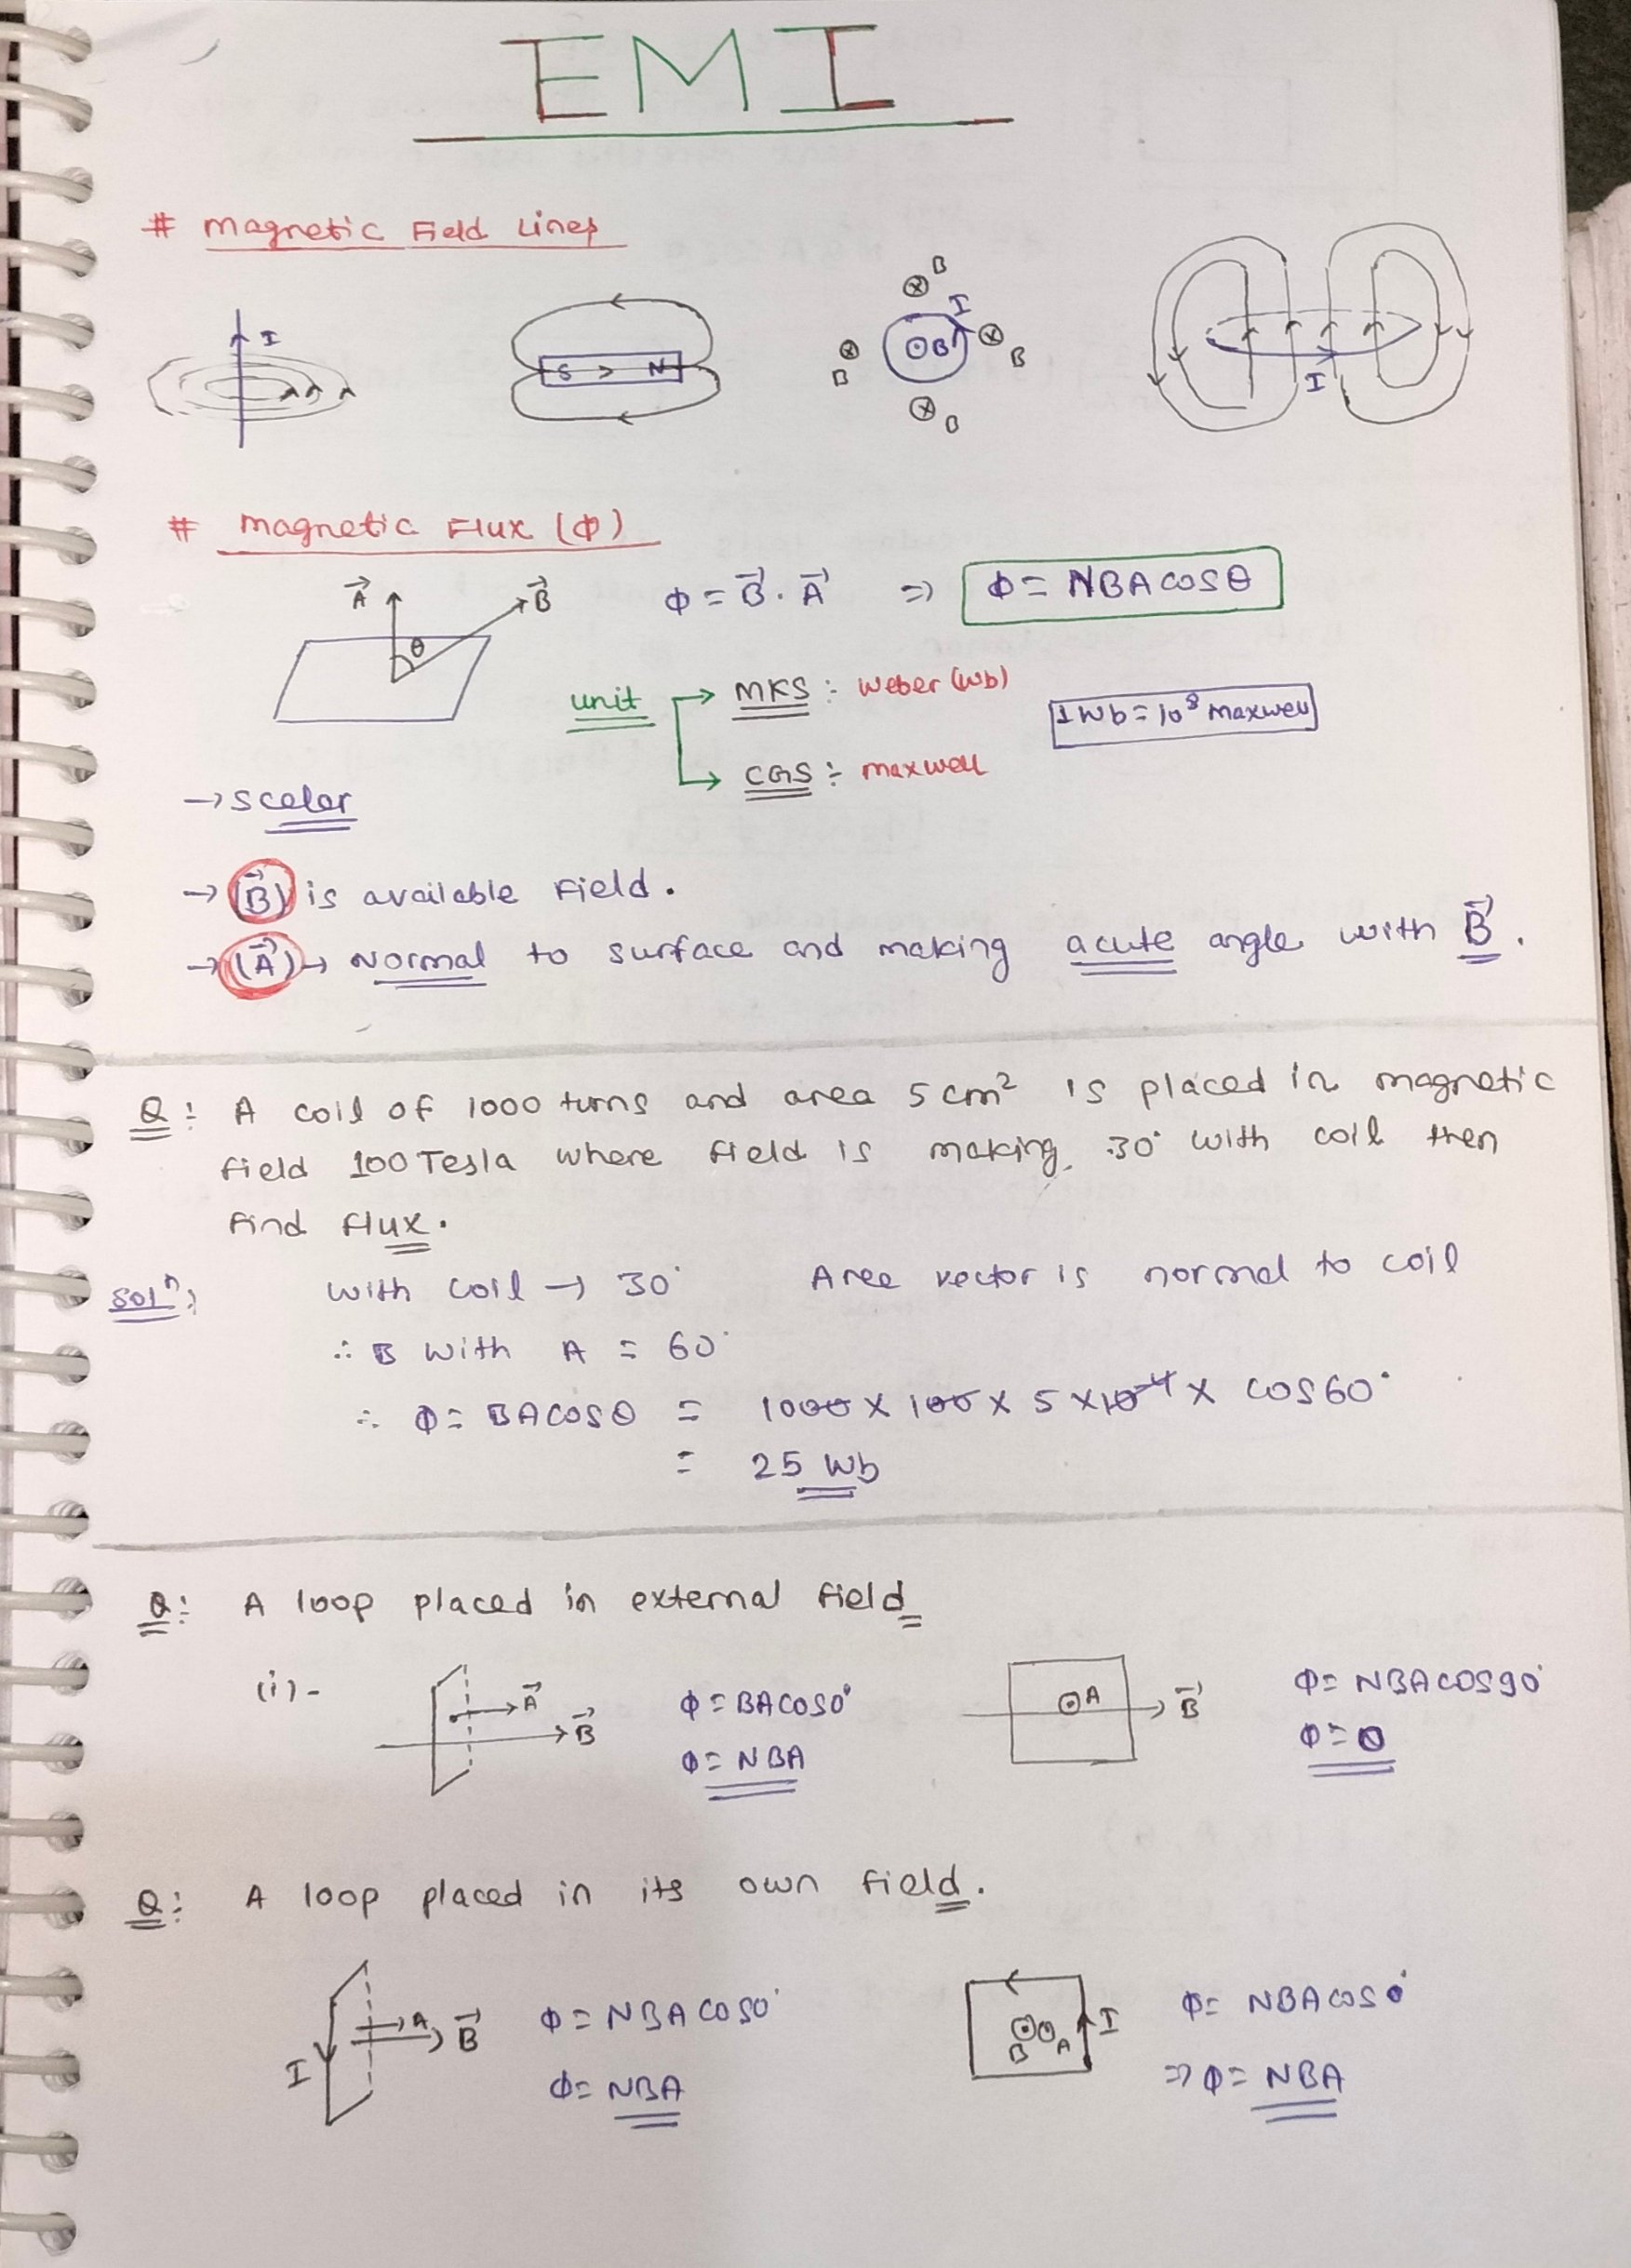 EMI
# Magnetic Field Lines
I
S > N
B
I
⊗
⊗ ⊙B ⊗
B B
⊗ B
I
# Magnetic Flux (Φ)
A⃗ B⃗ Φ = B⃗ . A⃗ ⇒ Φ = NBA cosθ
θ
unit → MKS : Weber (Wb) 1 Wb = 10⁸ Maxwell
→ CGS : Maxwell
→ Scaler
→ (B⃗) is available field.
→ (A⃗) → Normal to surface and making acute angle with B⃗.
Q: A coil of 1000 turns and area 5 cm² is placed in magnetic
field 100 Tesla where field is making 30° with coil then
find flux.
Solⁿ: with coil → 30° Area vector is normal to coil
∴ B with A = 60°
∴ Φ = BA cosθ = 1000 × 100 × 5 × 10⁻⁴ × cos60°
= 25 Wb
Q: A loop placed in external field
(i) - A⃗ B⃗ Φ = BA cos0° ⊙A B⃗ Φ = NBA cos90°
Φ = NBA Φ = 0
Q: A loop placed in its own field.
I A B⃗ Φ = NBA cos0° ⊙⊙ B A I Φ = NBA cos0°
Φ = NBA ⇒ Φ = NBA